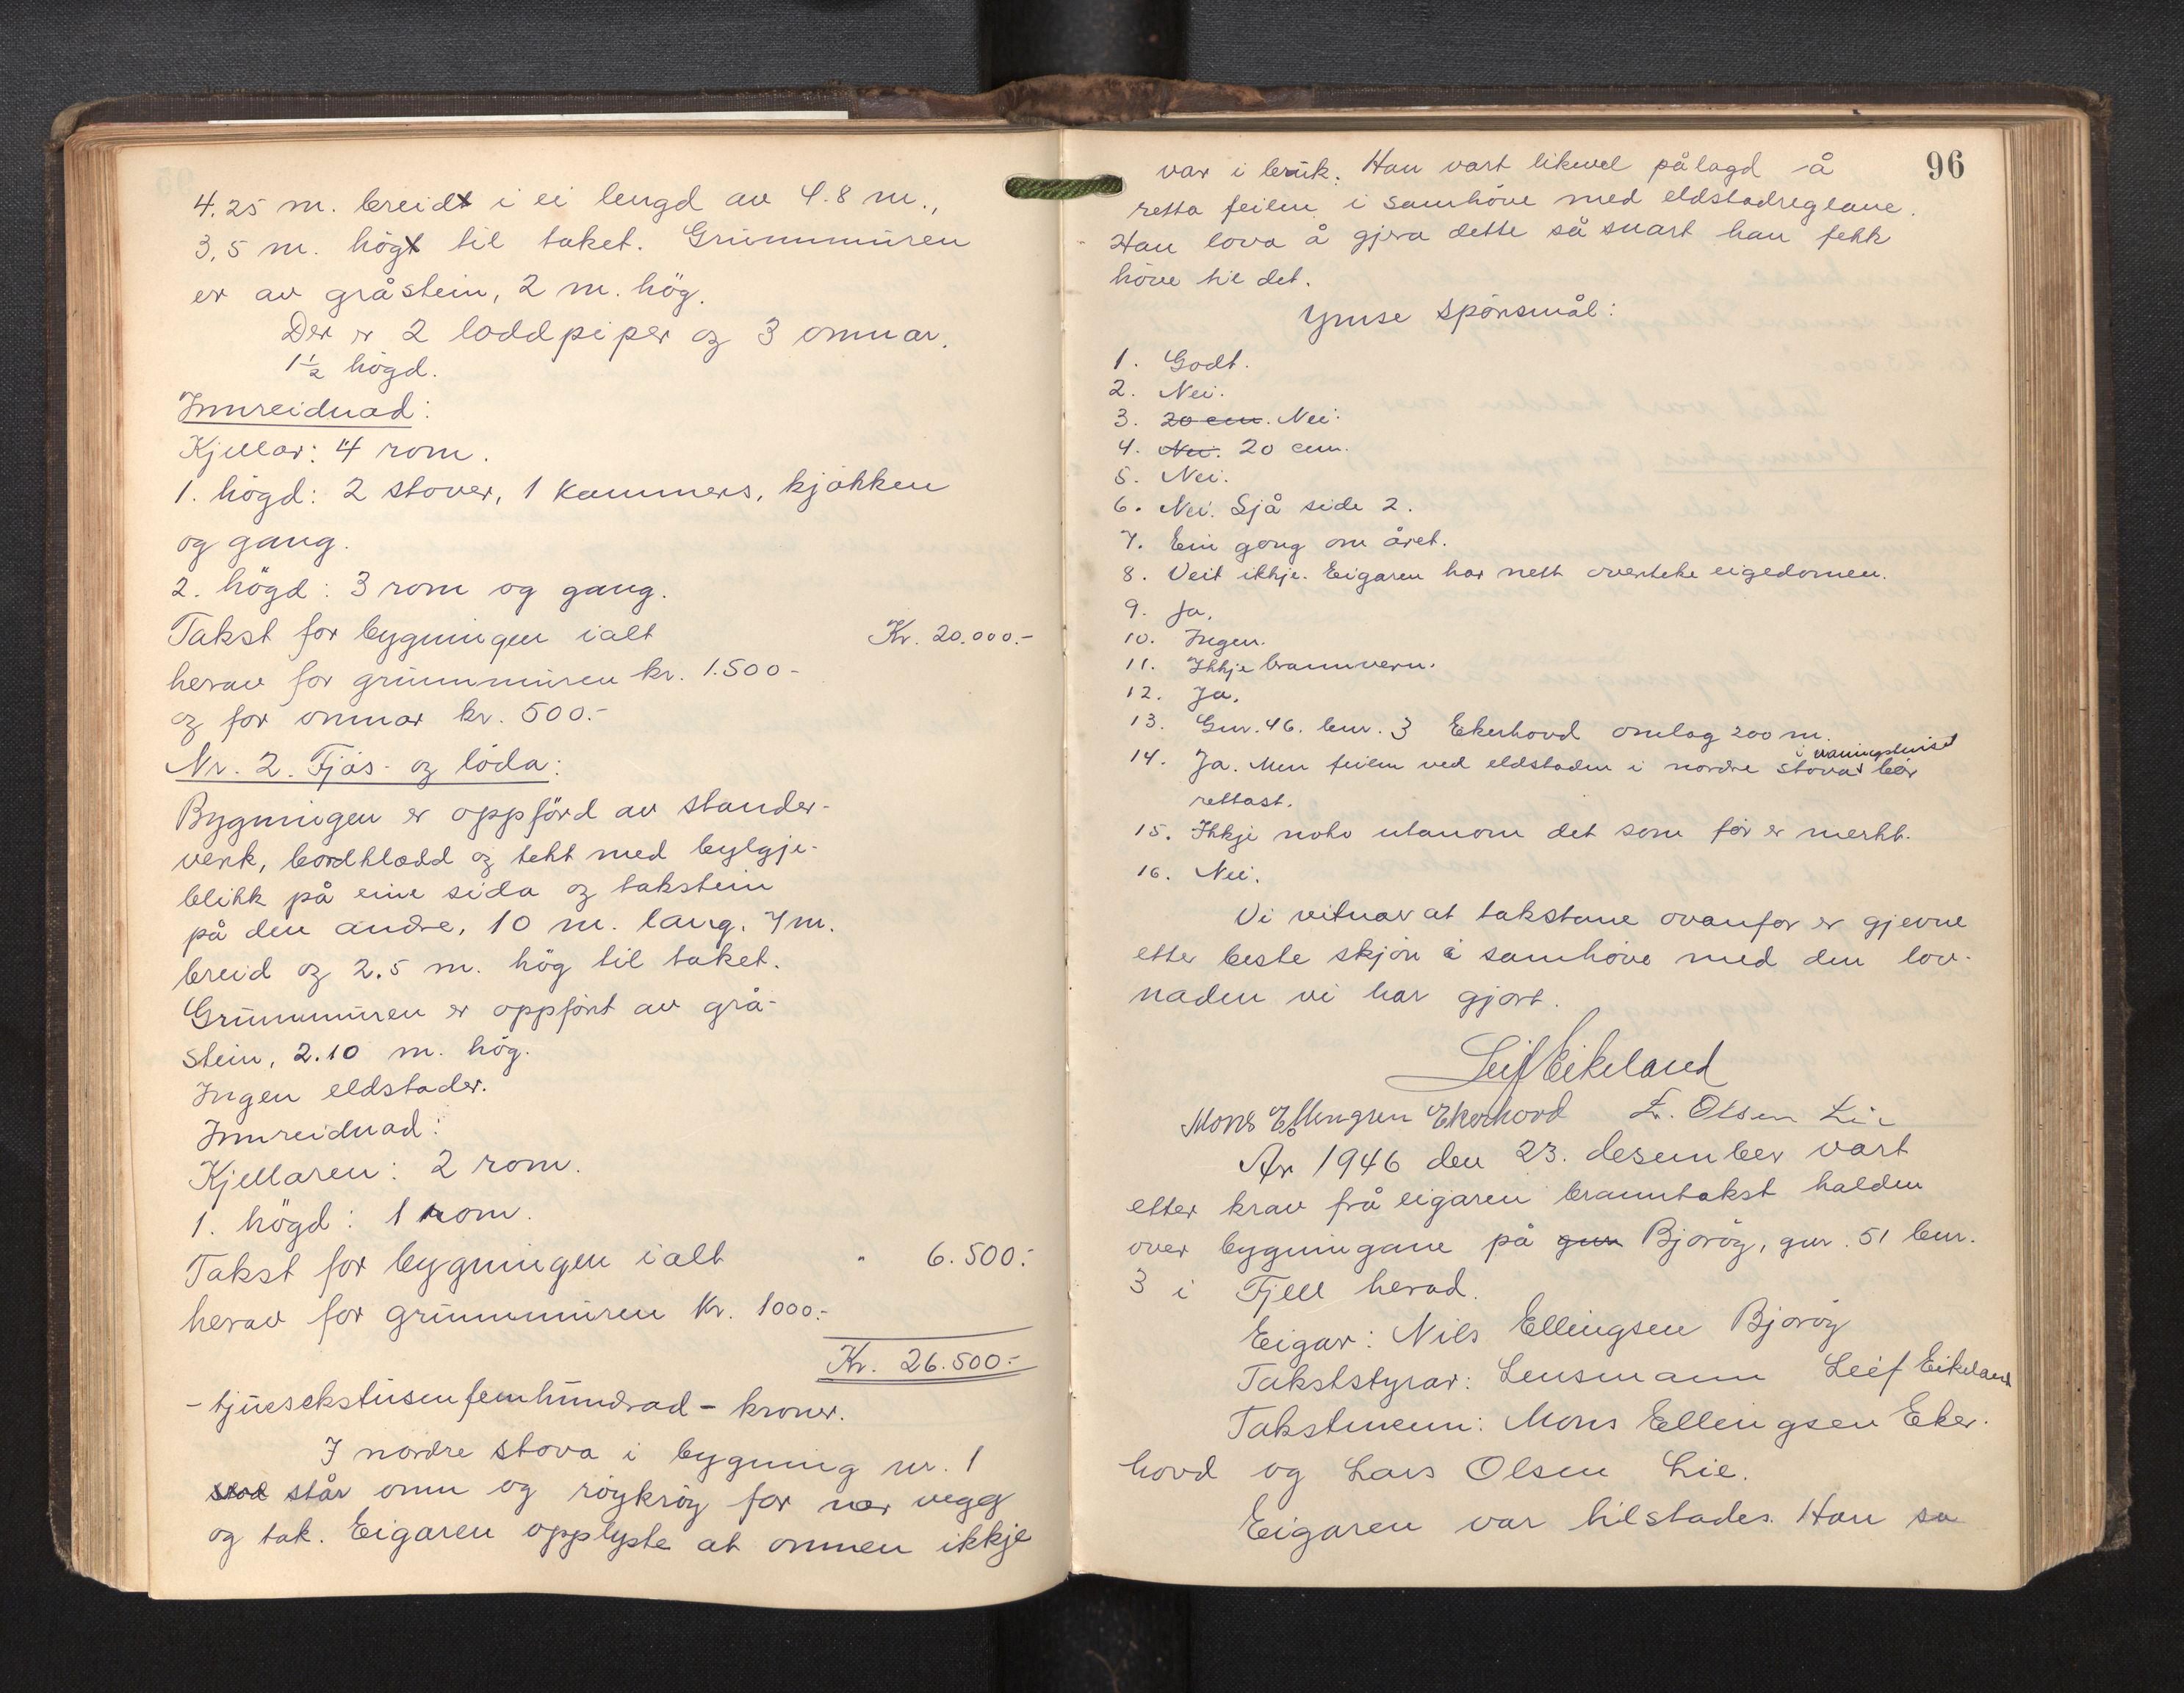 4.25 m. breidt i ei lengd av 4.8 m.,
3,5 m. högt til taket. Grunnmuren
er av gråstein, 2 m. hög.
Der er 2 loddpiper og 3 omnar.
1½ högd.
Innreidnad:
Kjellar: 4 rom.
1. högd: 2 stover, 1 kammers, kjökken
og gang.
2. högd: 3 rom og gang.
Takst for bygningen ialt Kr. 20.000.-
herav for grunnmuren kr. 1.500-
og for omnar kr. 500.-
Nr. 2. Fjös- og löda:
Bygningen er oppförd av stander-
verk, bordklædd og tekt med bylgje-
blikk på eine sida og takstein
på den andre, 10 m. lang, 7 m.
breid og 2.5 m. hög til taket.
Grunnmuren er oppfört av grå-
stein, 2.10 m. hög.
Ingen eldstader.
Innreidnad:
Kjellaren: 2 rom.
1. högd: 1 rom.
Takst for bygningen ialt " 6.500:-
herav for grunnmuren Kr. 1000:-
Kr. 26.500:-
- tjuesekstusenfemhundrad - kroner.
I nordre stova i bygning nr. 1
står omn og röykröy for nær vegg
og tak. Eigaren opplyste at omnen ikkje
96
var i bruk. Han vart likevel pålagd å
retta feilen i samhöve med eldstadreglane.
Han lova å gjera dette så snart han fekk
höve til det.
Ymse spörsmål:
1. Godt.
2. Nei.
3. 20 cm. Nei.
4. Nei. 20 cm.
5. Nei.
6. Nei. Sjå side 2.
7. Ein gong om året.
8. Veit ikkje. Eigaren har nett overteke eigedomen.
9. Ja.
10. Ingen.
11. Ikkje brannvern.
12. Ja.
13. Gnr. 46. bnr. 3 Ekerhovd omlag 200 m.
14. Ja. Men feilen ved eldstaden i nordre stova i våningshuset bör
rettast.
15. Ikkje noko utanom det som för er merkt.
16. Nei.
Vi vitnar at takstane ovanfor er gjevne
etter beste skjön i samhöve med den lov-
naden vi har gjort.
Leif Eikeland
Mons Ellingsen Ekerhovd L. Olsen Lie
År 1946 den 23. desember vart
etter krav frå eigaren branntakst halden
over bygningane på gnr Bjoröy, gnr. 51 bnr.
3 i Fjell herad.
Eigar: Nils Ellingsen Bjoröy
Takststyrar: Lensmann Leif Eikeland
Takstmenn: Mons Ellingsen Eker-
hovd og Lars Olsen Lie.
Eigaren var tilstades. Han sa